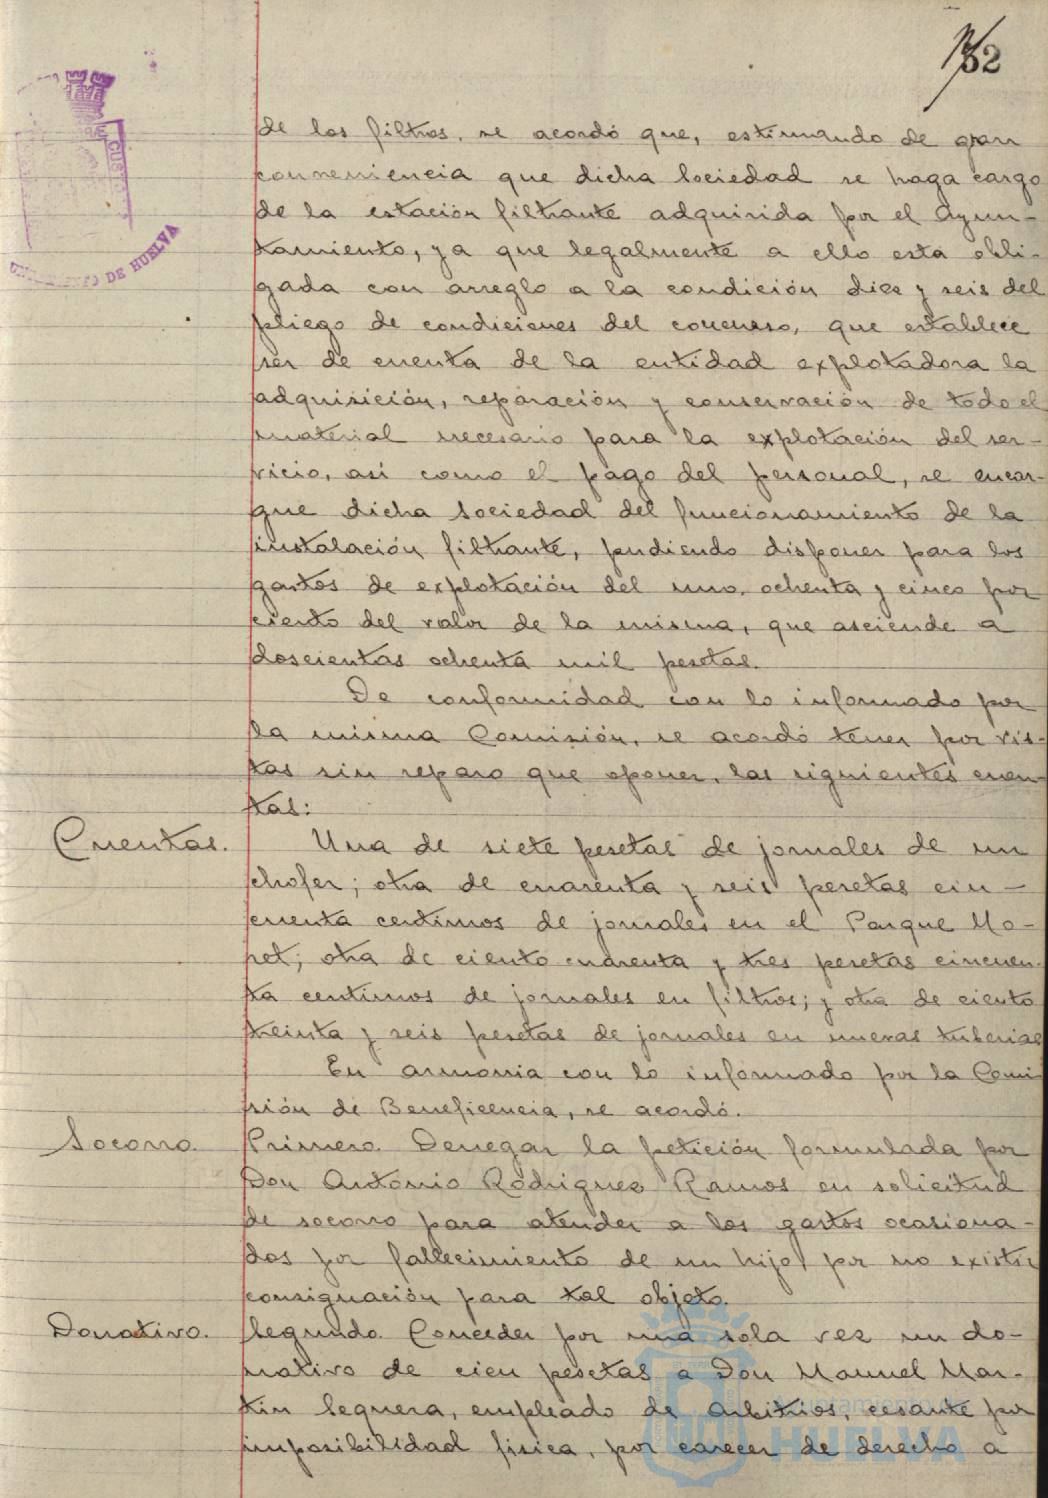 de los filtros, se acordó que, estimando de gran
conveniencia que dicha Sociedad se haga cargo
de la estación filtrante adquirida por el Ayun-
tamiento, ya que legalmente a ello esta obli-
gada con arreglo a la condición diez y seis del
pliego de condiciones del concurso, que establece
ser de cuenta de la entidad explotadora la
adquisición, reparación y conservación de todo el
material necesario para la explotación del ser-
vicio, asi como el pago del personal, se encar-
gue dicha Sociedad del funcionamiento de la
instalación filtrante, pudiendo disponer para los
gastos de explotación del uno, ochenta y cinco por
ciento del valor de la misma, que asciende a
doscientas ochenta mil pesetas.
De conformidad con lo informado por
la misma Comisión, se acordó tener por vis-
tas sin reparo que oponer, las siguientes cuen-
tas:
Cuentas.
Una de siete pesetas de jornales de un
chofer; otra de cuarenta y seis pesetas cin-
cuenta centimos de jornales en el Parque Mo-
ret; otra de ciento cuarenta y tres pesetas cincuen-
ta centimos de jornales en filtros; y otra de ciento
treinta y seis pesetas de jornales en nuevas tuberias
En armonia con lo informado por la Comi
sión de Beneficencia, se acordó.
Socorro.
Primero. Denegar la petición formulada por
Don Antonio Rodriguez Ramos en solicitud
de socorro para atender a los gastos ocasiona-
dos por fallecimiento de un hijo, por no existir
consignación para tal objeto.
Donativo.
Segundo. Conceder por una sola vez un do-
nativo de cien pesetas a Don Manuel Mar-
tin Sequera, empleado de Arbitrios, cesante por
imposibilidad fisica, por carecer de derecho a
DE HUELVA
Ayuntamiento
HUELVA